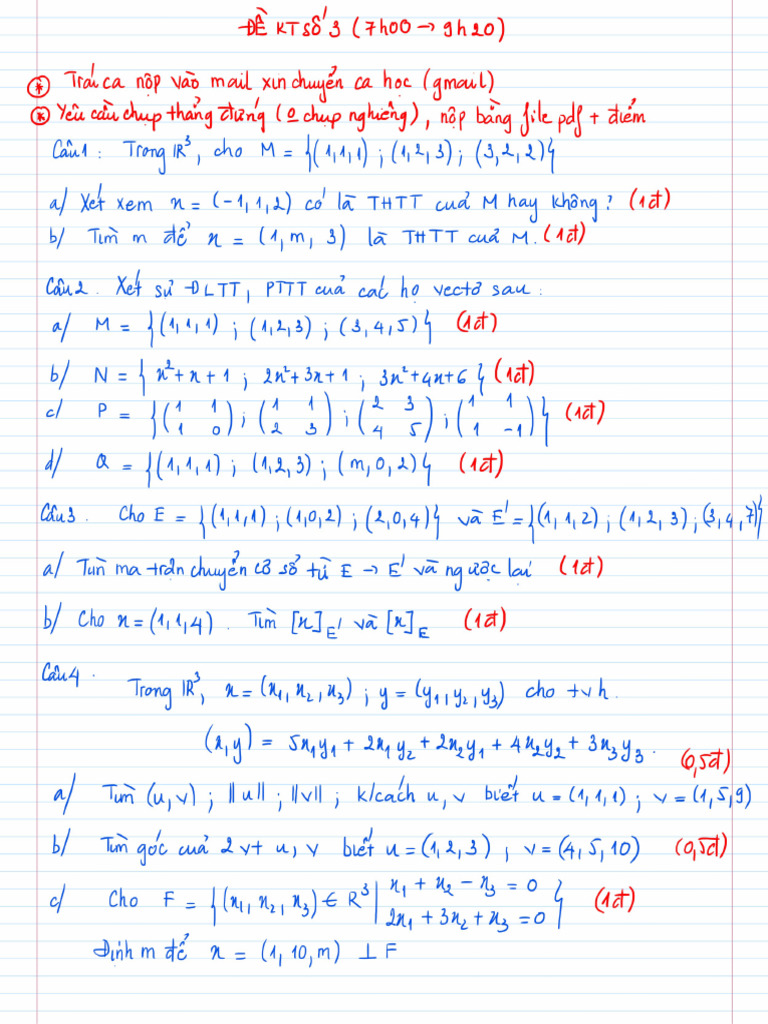 ĐỀ KT số 3 (7h00 → 9h20)
* Trái ca nộp vào mail xin chuyển ca học (gmail)
* Yêu cầu chụp thẳng đứng (0 chụp nghiêng), nộp bằng file pdf + điểm
Câu 1 : Trong ℝ³, cho M = {(1,1,1) ; (1,2,3) ; (3,2,2)}
a/ Xét xem x = (-1,1,2) có là THTT của M hay không ? (1đ)
b/ Tìm m để x = (1, m, 3) là THTT của M. (1đ)
Câu 2. Xét sự ĐLTT, PTTT của các họ vectơ sau :
a/ M = {(1,1,1) ; (1,2,3) ; (3,4,5)} (1đ)
b/ N = { x²+x+1 ; 2x²+3x+1 ; 3x²+4x+6 } (1đ)
c/ P = {(1 1 ; (1 1 ; (2 3 ; (1 1 (1đ)
1 0) 2 3) 4 5) 1 -1)}
d/ Q = {(1,1,1) ; (1,2,3) ; (m,0,2)} (1đ)
Câu 3. Cho E = {(1,1,1) ; (1,0,2) ; (2,0,4)} và E' = {(1,1,2) ; (1,2,3) ; (3,4,7)}
a/ Tìm ma trận chuyển cơ sở từ E → E' và ngược lại (1đ)
b/ Cho x = (1,1,4) . Tìm [x]E' và [x]E (1đ)
Câu 4.
Trong ℝ³, x = (x₁, x₂, x₃) ; y = (y₁, y₂, y₃) cho tvh.
(x,y) = 5x₁y₁ + 2x₁y₂ + 2x₂y₁ + 4x₂y₂ + 3x₃y₃. (0,5đ)
a/ Tìm (u,v) ; ||u|| ; ||v|| ; k/cách u, v biết u = (1,1,1) ; v = (1,5,9)
b/ Tìm góc của 2 vt u, v biết u = (1,2,3) ; v = (4,5,10) (0,5đ)
c/ Cho F = {(x₁, x₂, x₃) ∈ R³ | x₁ + x₂ - x₃ = 0 (1đ)
2x₁ + 3x₂ + x₃ = 0}
Định m để x = (1, 10, m) ⊥ F